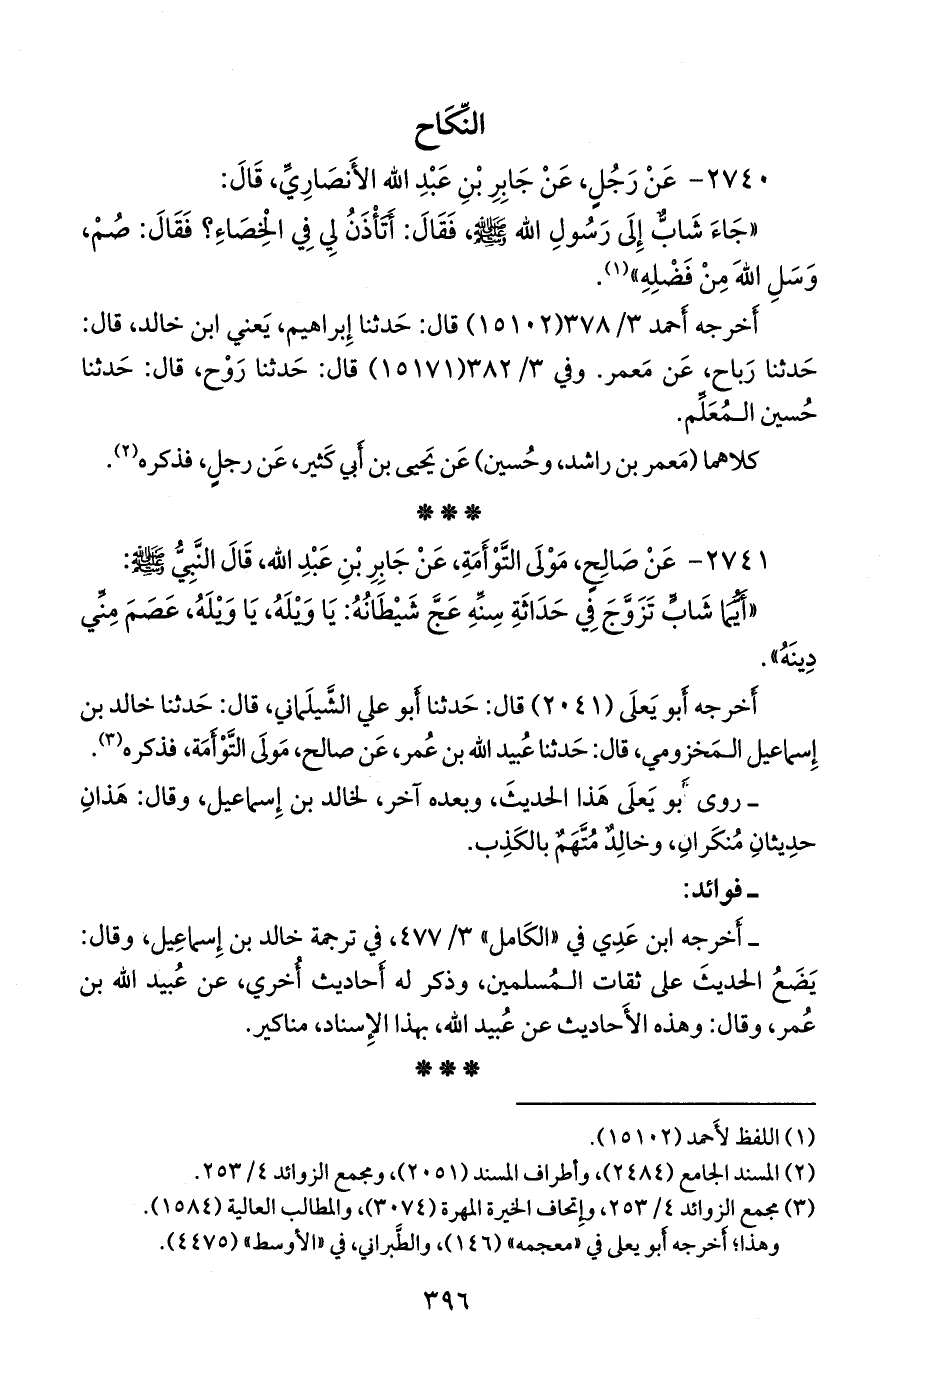 النِّكَاح
٢٧٤٠- عَنْ رَجُلٍ، عَنْ جَابِرِ بْنِ عَبْدِ الله الأَنصَارِيِّ، قَالَ:
«جَاءَ شَابٌّ إِلَى رَسُولِ الله ﷺ، فَقَالَ: أَتَأْذَنُ لِي فِي الْخِصَاءِ؟ فَقَالَ: صُمْ،
وَسَلِ اللهَ مِنْ فَضْلِهِ»(١).
أَخرجه أَحمد ٣/ ٣٧٨(١٥١٠٢) قال: حَدثنا إِبراهيم، يَعني ابن خالد، قال:
حَدثنا رَباح، عَن مَعمر. وفي ٣/ ٣٨٢(١٥١٧١) قال: حَدثنا رَوْح، قال: حَدثنا
حُسين الـمُعَلِّم.
كلاهما (مَعمر بن راشد، وحُسين) عَن يَحيى بن أَبي كَثير، عَن رجلٍ، فذكره(٢).
* * *
٢٧٤١- عَنْ صَالِحٍ، مَوْلَى التَّوْأَمَةِ، عَنْ جَابِرِ بْنِ عَبْدِ الله، قَالَ النَّبِيُّ ﷺ:
«أَيُّمَا شَابٍّ تَزَوَّجَ فِي حَدَاثَةِ سِنِّهِ عَجَّ شَيْطَانُهُ: يَا وَيْلَهُ، يَا وَيْلَهُ، عَصَمَ مِنِّي
دِينَهُ».
أَخرجه أَبو يَعلَى (٢٠٤١) قال: حَدثنا أَبو علي الشَّيلَماني، قال: حَدثنا خالد بن
إِسماعيل الـمَخزومي، قال: حَدثنا عُبيد الله بن عُمر، عَن صالح، مَولَى التَّوْأَمَة، فذكره(٣).
ـ روى أَبو يَعلَى هَذا الحَديثَ، وبعده آخر، لخالد بن إِسماعيل، وقال: هَذانِ
حدِيثانِ مُنكَرانِ، وخالِدٌ مُتَّهَمٌ بالكَذِب.
ـ فوائد:
ـ أَخرجه ابن عَدِي في «الكامل» ٣/ ٤٧٧، في ترجمة خالد بن إِسماعِيل، وقال:
يَضَعُ الحَديثَ على ثقات الـمُسلمين، وذكر له أَحاديث أُخري، عن عُبيد الله بن
عُمر، وقال: وهذه الأَحاديث عن عُبيد الله، بهذا الإِسناد، مناكير.
* * *
(١) اللفظ لأَحمد (١٥١٠٢).
(٢) المسند الجامع (٢٤٨٤)، وأطراف المسند (٢٠٥١)، ومجمع الزوائد ٤/ ٢٥٣.
(٣) مجمع الزوائد ٤/ ٢٥٣، وإِتحاف الخيرة المهرة (٣٠٧٤)، والمطالب العالية (١٥٨٤).
وهذا؛ أَخرجه أَبو يعلى في «معجمه» (١٤٦)، والطَّبراني، في «الأوسط» (٤٤٧٥).
٣٩٦